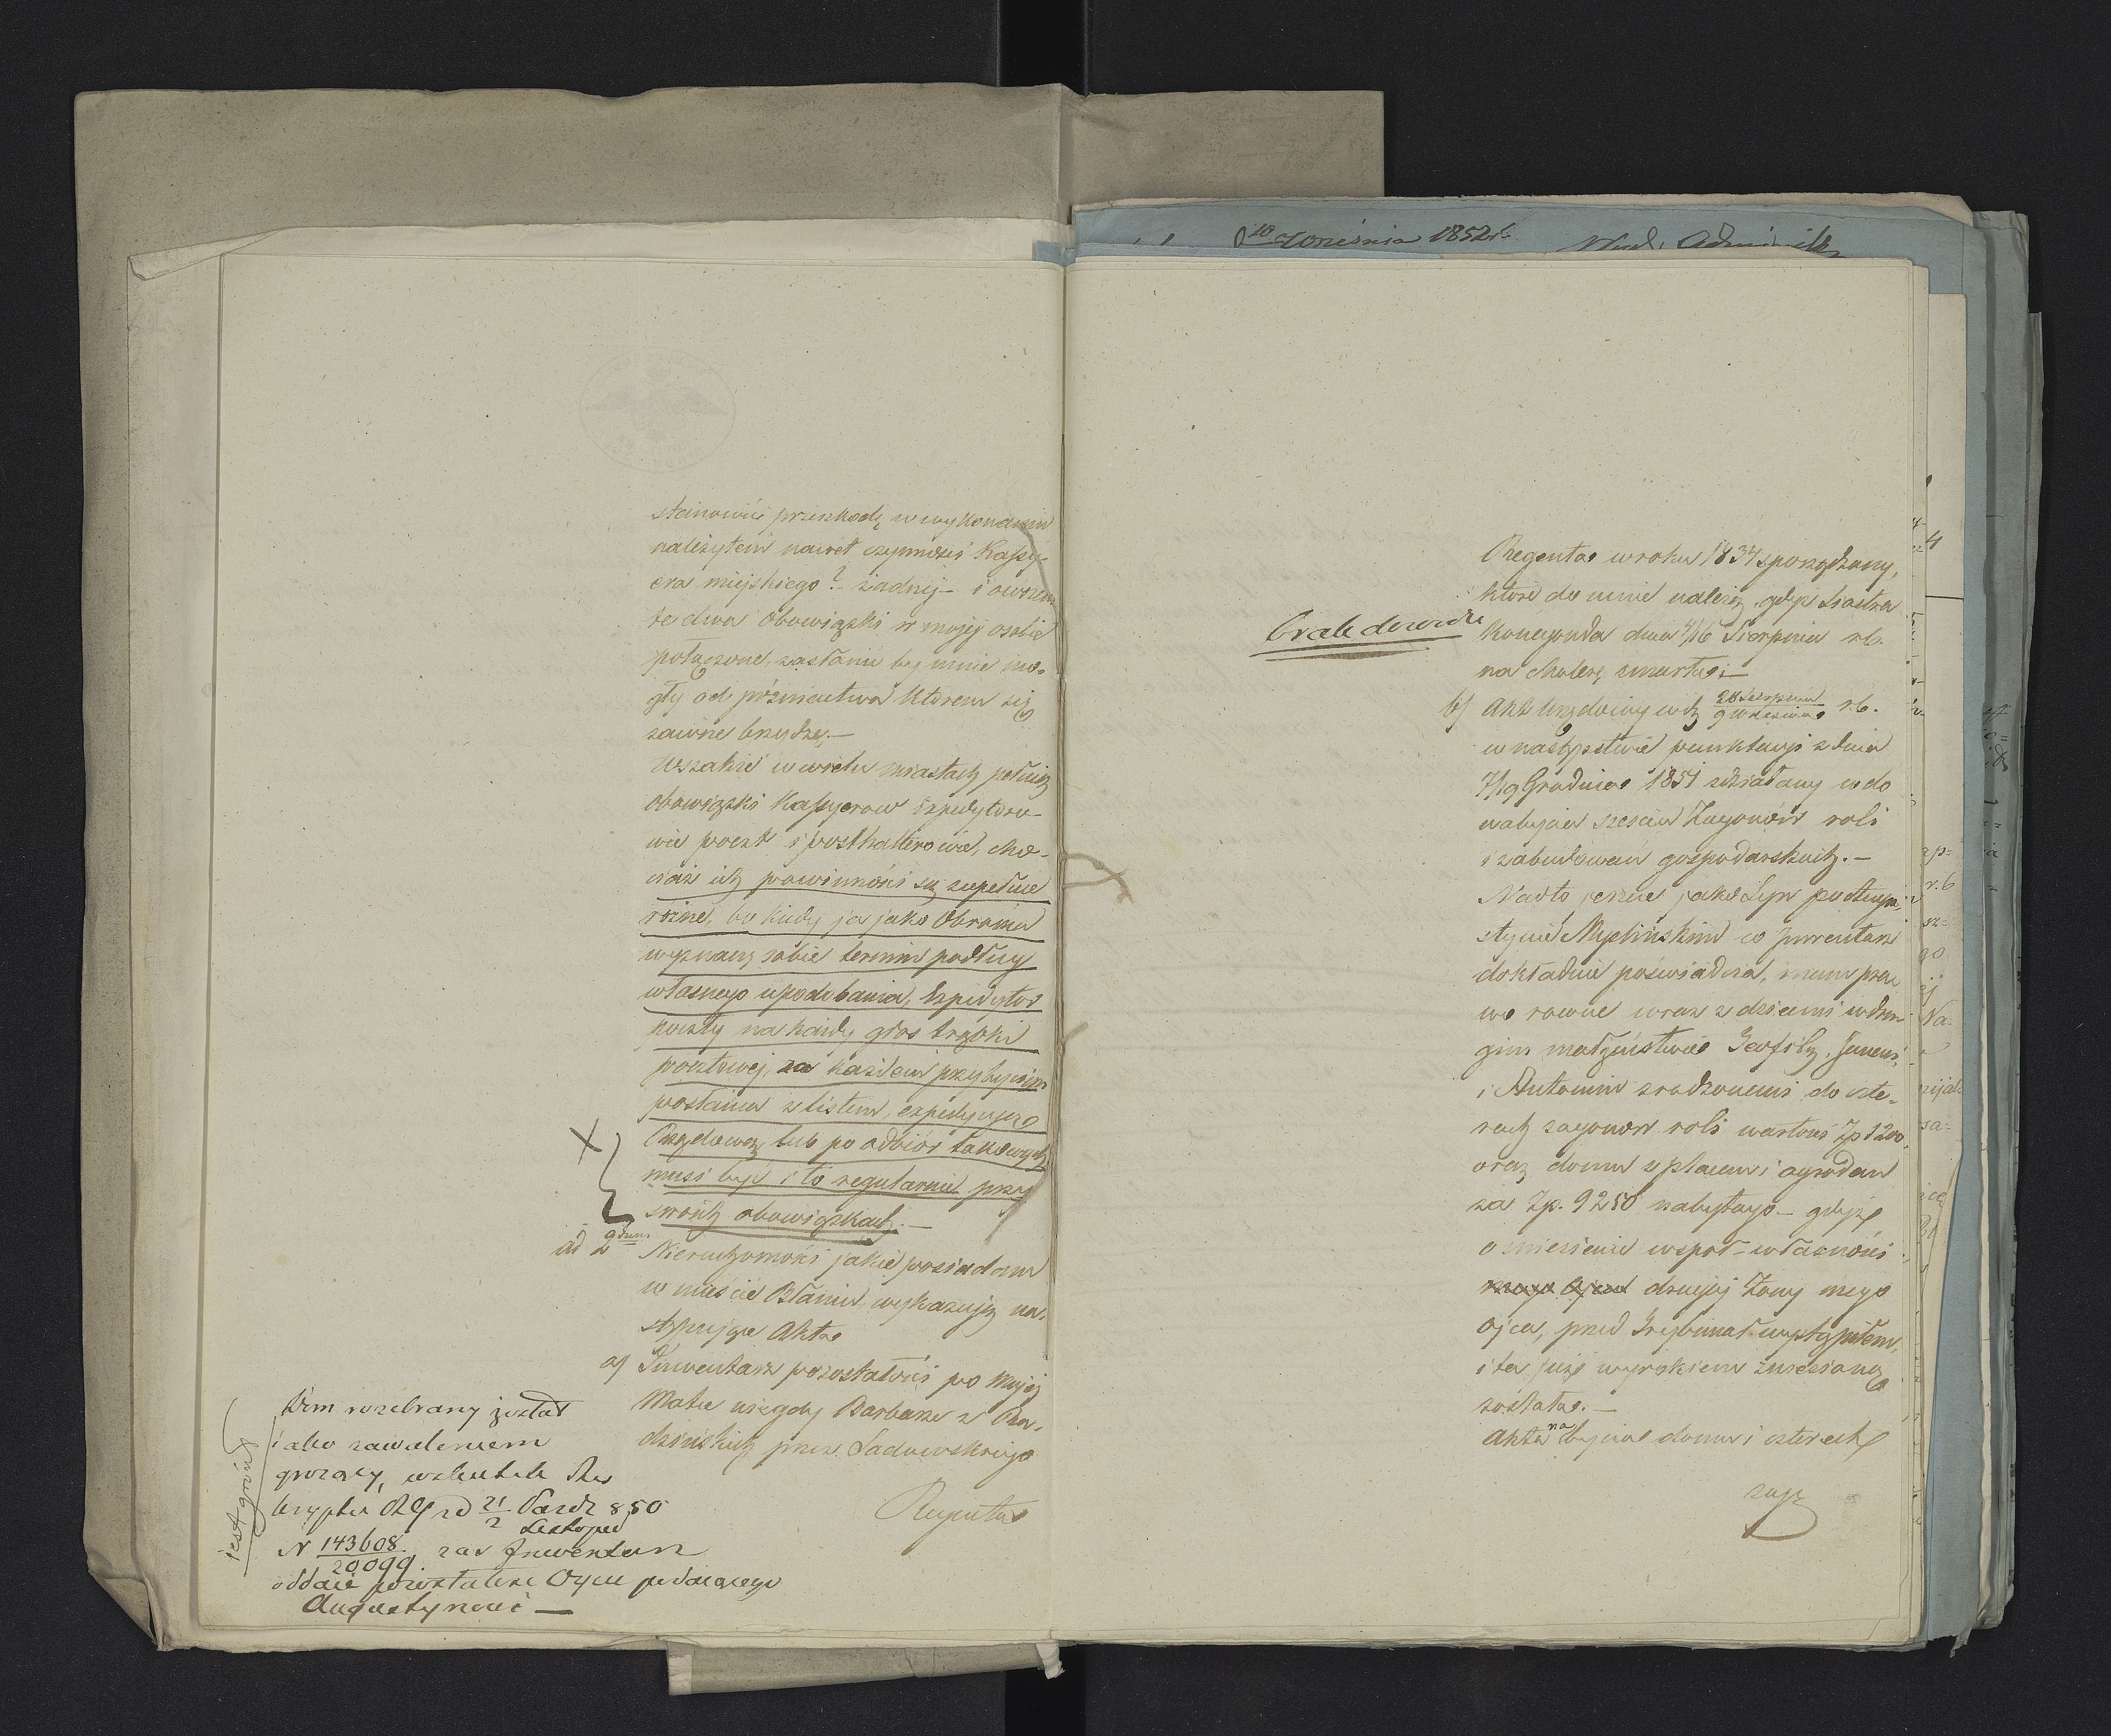 stanowić przeszkodę w wykonaniu
należytém nawet czynności Kassy-
era miejskiego? żadnéj – i owszem
te dwa obowiązki w mojéj osobie
połączone, zasłonić by mnie mo-
gły od próżniactwa którem się
zawsze brzydzę. –
Wszakże w wielu miastach pełnią
obowiązki Kassyerow Expedytoro-
wie poczt i posthalterowie, cho-
ciaż ich powinności są zupełnie
różne, bo kiedy ja jako Obrońca
wyznaczę sobie termin podług
własnego upodobania, Expedytor
poczty na każdy głos trąbki
pocztowéj, za każdem przybyciem
posłańca z listem, expedycyą
Rządową lub po odbiór takowych
X musi być i to regularnie przy
swoich obowiązkach. –
ad 2 Nieruchomości jakie posiadam
w mieście Błoniu, wykazują na-
stępujące Akta
a) Inwentarz pozostałości po mojéj
Matce niegdy Barbarze z Ra-
dzińskich przez Sadowskiego
Regenta
Dom rozebrany został
iako zawaleniem
grozący, wskutek Res
kryptu RG zd 21/2 Pazdz/Listopad 850
N 143608/20099. zas Inwentarz
oddaie pozostałosc Oycu podaiącego
Augustynowi —
iest grunt
10 Wrzesnia 1852 r.
Regenta w roku 1834 sporządzony,
które do mnie należą, gdyż Siostra
Kunegunda dnia 4/16 Sierpnia r.b.
na cholerę zmarła; –
brak dowodu
b) Akt Urzędowy w d. 28 Sierpnia/9 Września r.b.
w następstwie punktacyi z dnia
7/19 Grudnia 1851 zdziałany co do
nabycia sześciu Zagonów roli
i zabudowań gospodarskich. –
Nadto jeszcze jako Syn po Augu-
stynie Myslińskim co Inwentarz
dokładnie poświadcza, mam pra-
wo rowne wraz z dziećmi w dru-
giem małżeństwie Teofilą,
i Antonim zrodzonemi do czte-
rech zagonow roli wartości Zp 1200,
oraz domu z placem i ogrodem
za Zp. 9250 nabytego – gdyż
o zniesienie wspoł-własności
mego Ojca drugiéj Żony mego
Ojca, przed Trybunał wystąpiłem,
i ta już wyrokiem zniesioną
została. –
Akta nabycia domu i czterech
zago
4